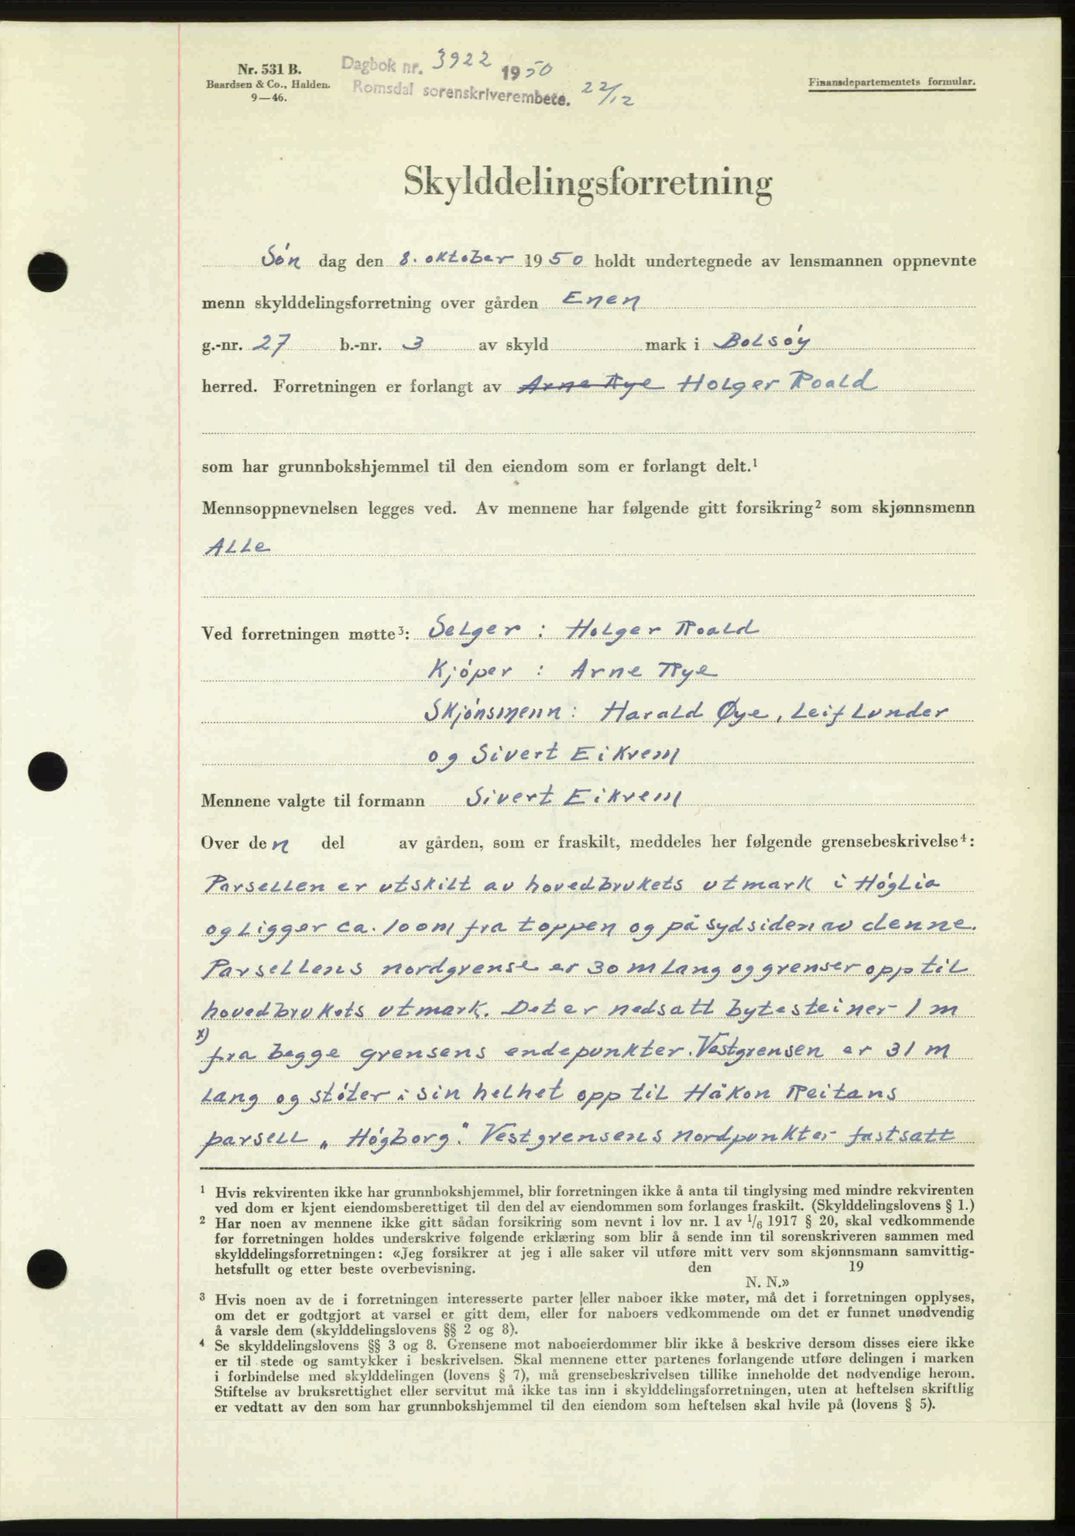 Nr. 531 B.
Baardsen & Co., Halden.
9—46.
Dagbok nr. 3922 1950
Romsdal sorenskriverembete. 22/12
Finansdepartementets formular.
Skylddelingsforretning
Søn dag den 8. oktober 1950 holdt undertegnede av lensmannen oppnevnte
menn skylddelingsforretning over gården Enen
g.-nr. 27 b.-nr. 3 av skyld mark i Bolsøy
herred. Forretningen er forlangt av Arne Rye Holger Roald
som har grunnbokshjemmel til den eiendom som er forlangt delt.¹
Mennsoppnevnelsen legges ved. Av mennene har følgende gitt forsikring² som skjønnsmenn
Alle
Ved forretningen møtte³: Selger : Holger Roald
Kjøper : Arne Rye
Skjønsmenn: Harald Øye, Leif Lunder
og Sivert Eikrem
Mennene valgte til formann Sivert Eikrem
Over den del av gården, som er fraskilt, meddeles her følgende grensebeskrivelse⁴:
Parsellen er utskilt av hovedbrukets utmark i Høglia
og ligger ca. 100 m fra toppen og på sydsiden av denne.
Parsellens nordgrense er 30 m lang og grenser opp til
hovedbrukets utmark. Det er nedsatt bytesteiner 1 m
x)
fra begge grensens endepunkter. Vestgrensen er 31 m
lang og støter i sin helhet opp til Håkon Reitans
parsell „Høgborg". Vestgrensens nordpunkter fastsatt
¹ Hvis rekvirenten ikke har grunnbokshjemmel, blir forretningen ikke å anta til tinglysing med mindre rekvirenten
ved dom er kjent eiendomsberettiget til den del av eiendommen som forlanges fraskilt. (Skylddelingslovens § 1.)
² Har noen av mennene ikke gitt sådan forsikring som nevnt i lov nr. 1 av 1/6 1917 § 20, skal vedkommende
før forretningen holdes underskrive følgende erklæring som blir å sende inn til sorenskriveren sammen med
skylddelingsforretningen: «Jeg forsikrer at jeg i alle saker vil utføre mitt verv som skjønnsmann samvittig-
hetsfullt og etter beste overbevisning. den 19
N. N.»
³ Hvis noen av de i forretningen interesserte parter eller naboer ikke møter, må det i forretningen opplyses,
om det er godtgjort at varsel er gitt dem, eller for naboers vedkommende om det er funnet unødvendig
å varsle dem (skylddelingslovens §§ 2 og 8).
⁴ Se skylddelingslovens §§ 3 og 8. Grensene mot naboeierdommer blir ikke å beskrive dersom disses eiere ikke
er til stede og samtykker i beskrivelsen. Skal mennene etter partenes forlangende utføre delingen i marken
i forbindelse med skylddelingen (lovens § 7), må grensebeskrivelsen tillike inneholde det nødvendige herom.
Stiftelse av bruksrettighet eller servitut må ikke tas inn i skylddelingsforretningen, uten at heftelsen skriftlig
er vedtatt av den som har grunnbokshjemmel til den eiendom som heftelsen skal hvile på (lovens § 5).